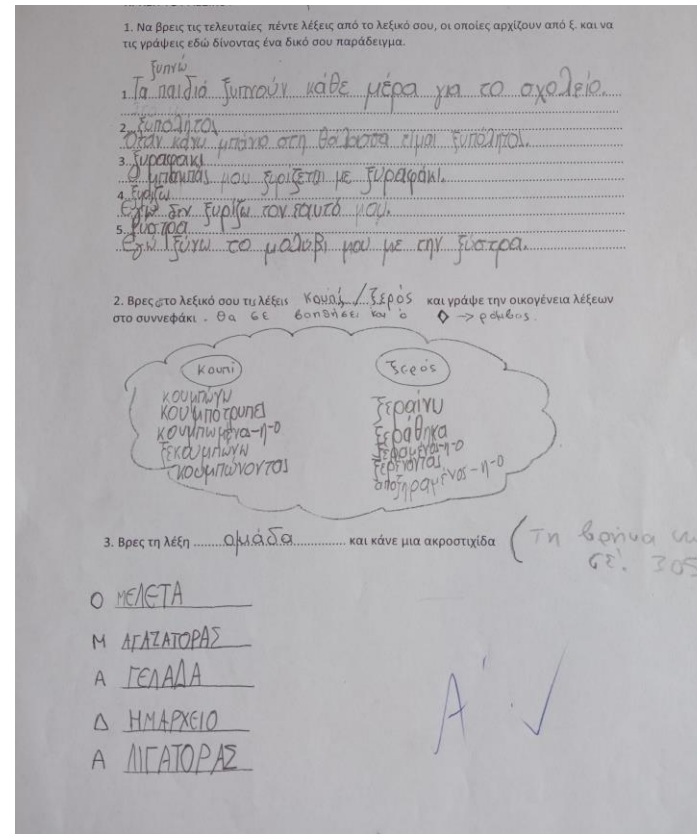 1. Να βρεις τις τελευταίες πέντε λέξεις από το λεξικό σου, οι οποίες αρχίζουν από ξ. και να
τις γράψεις εδώ δίνοντας ένα δικό σου παράδειγμα.
ξυπνώ
1. Τα παιδιά ξυπνούν κάθε μέρα για το σχολείο.
2. ξυπόλητος
Όταν κάνω μπάνιο στη θάλασσα είμαι ξυπόλητος.
3. ξυραφάκι
Ο μπαμπάς μου ξυρίζεται με ξυραφάκι.
4. ξυρίζω
Εγώ δεν ξυρίζω τον εαυτό μου.
5. ξύστρα
Εγώ ξύνω το μολύβι μου με την ξύστρα.
2. Βρες στο λεξικό σου τις λέξεις / ξερός και γράψε την οικογένεια λέξεων
στο συννεφάκι. Θα σε βοηθήσει και ο ◊ -> ρόμβος.
Κουπί Ξερός
κουμπότρυπα ξεραίνω
ξεράθηκα
κουμπώνοντας
αποξηραμένος-η-ο
3. Βρες τη λέξη ομάδα και κάνε μια ακροστιχίδα (Τη βρήκα
σε. 305
Ο ΜΕΛΕΤΑ
Μ ΑΓΑΖΑΤΟΡΑΣ
Α ΓΕΛΑΔΑ
Δ ΗΜΑΡΧΕΙΟ
Α ΛΙΓΑΤΟΡΑΣ
Α' ✓